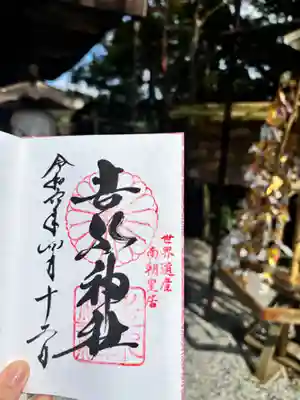 世界遺産
南朝皇居
吉水神社
令和年四月十二日